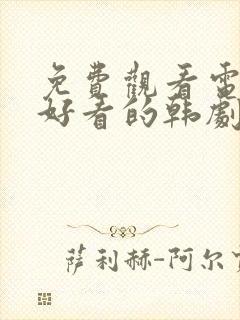 免費觀看電
好看的韩劇
萨利赫-阿尔